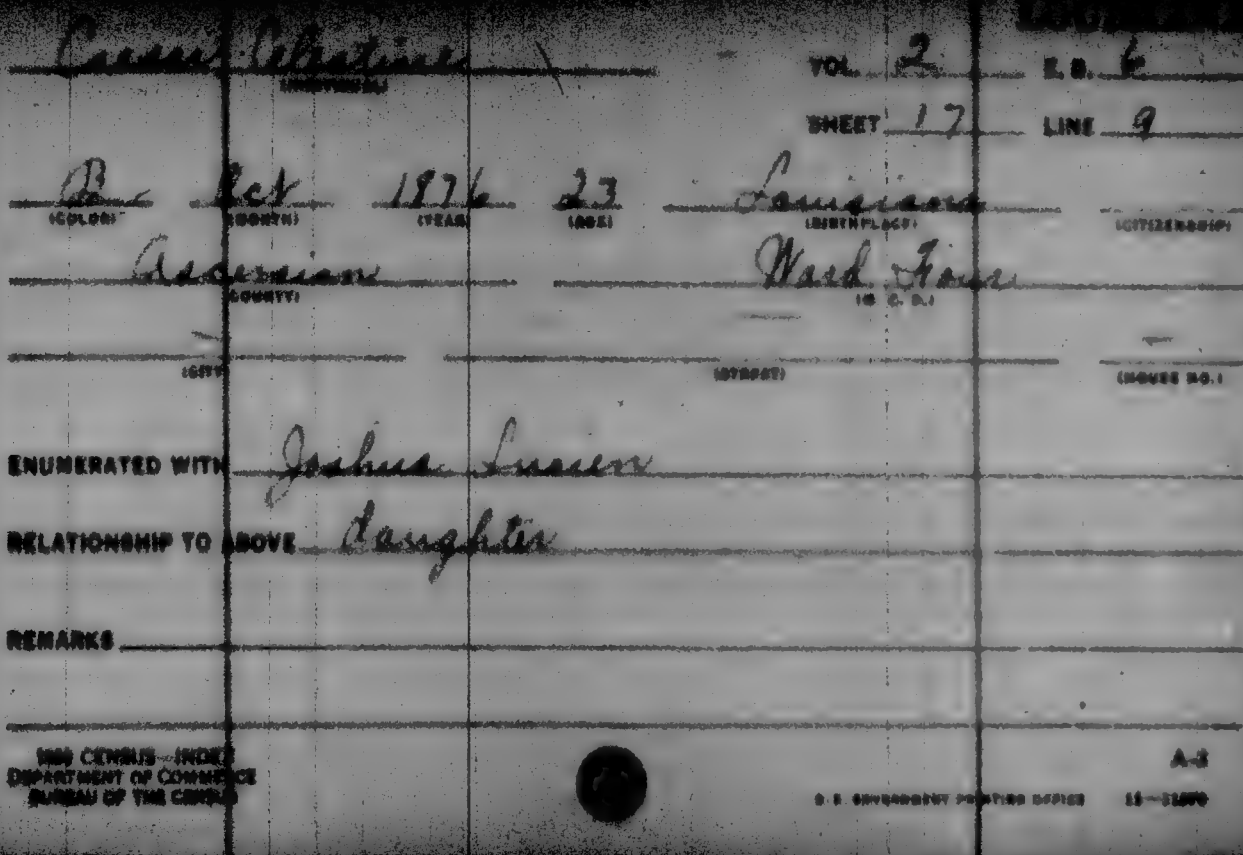 Celestine
(INDIVIDUAL)
VOL. 2 E. D. 6
SHEET 17 LINE 9
B Oct 1876 23 Louisiana
(COLOR) (MONTH) (YEAR) (AGE) (BIRTHPLACE) (CITIZENSHIP)
Ascension Ward Four
(COUNTY) (M. C. D.)
(CITY) (STREET) (HOUSE NO.)
ENUMERATED WITH Joshua Lucien
RELATIONSHIP TO ABOVE daughter
REMARKS
CENSUS—INDEX
DEPARTMENT OF COMMERCE
BUREAU OF THE CENSUS
A-3
U. S. GOVERNMENT PRINTING OFFICE